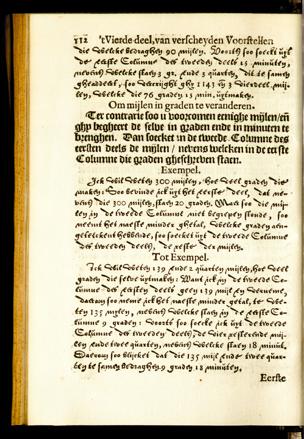 112 't Vierde deel, van verscheyden Voorstellen
die welcke bedraghen 90 mijlen. Voorts soo soeckt ijck
de eerste Columne des tweeden deels 15 minuten,
nevens welcke staen 3 gr. ende 3 quarten, dit te samen
mijlen, welcke die 76 graden 15 min. uytmaken.
Om mijlen in graden te veranderen.
Ter contrarie soo u voorkomen eenighe mijlen / eñ
ghy begheert de selve in graden ende in minuten te
brenghen. Dan soeckt in de tweede Columne des
eersten deels de mijlen / nevens welcken in de eerste
Columne die graden gheschreven staen.
Exempel.
Jck wil weten 300 mijlen, hoe veel graden die
maken: Soo bevinde ick uyt het eerste deel, dat ne-
vens die 300 mijlen, staen 20 graden. Maer soo die mij-
len in de tweede Columne niet begrepen stonde, soo
neemt het naeste minder ghetal, welcke graden aen-
gheteeckent hebbende, soo soecket uyt de tweede Columne
des tweeden deels, de reste der mijlen.
Tot Exempel.
Jck wil weten 139 ende 2 quarten mijlen, hoe veel
graden die selve uytmaken: Want ick in de tweede Co-
lumne des eersten deels gheen 139 mijlen en vernieme,
daerom soo neme ick het naeste minder getal, te we-
ten 135 mijlen, nevens welcke staen in de eerste Co-
lumne 9 graden: voorts soo soecke ick uyt de tweede
Columne des tweeden deels de vier resterende mij-
len ende twee quarten, nevens welcke staen 18 minut.
Daerom soo blijcket dat die 135 mijl ende twee quar-
ten te samen bedraghen 9 graden 18 minuten.
Eerste